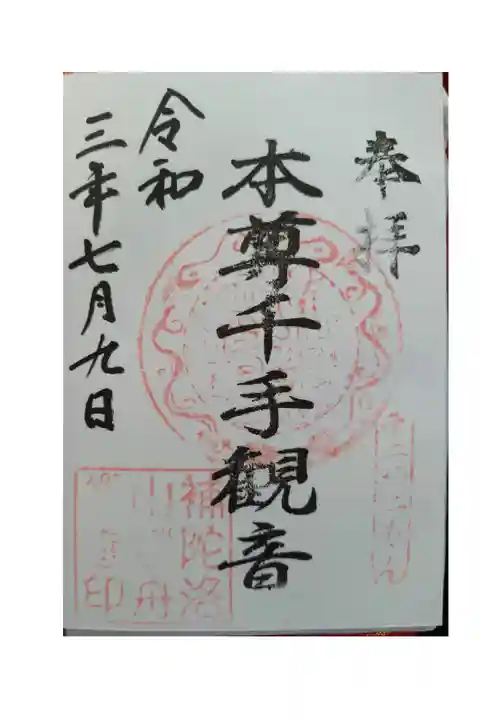 奉拝
本尊千手観音
令和
三年七月九日
補陀洛
山
印